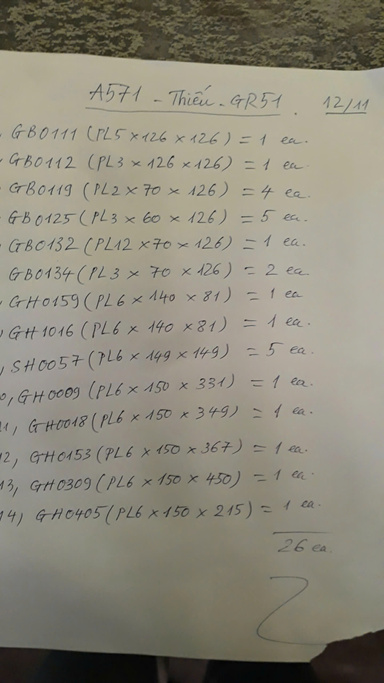 A571 - Thiếu - GR51. 12/11
GB0111 (PL5 × 126 × 126) = 1 ea.
GB0112 (PL3 × 126 × 126) = 1 ea.
GB0119 (PL2 × 70 × 126) = 4 ea.
GB0125 (PL3 × 60 × 126) = 5 ea.
GB0132 (PL12 × 70 × 126) = 1 ea.
GB0134 (PL3 × 70 × 126) = 2 ea
GH0159 (PL6 × 140 × 81) = 1 ea
GH1016 (PL6 × 140 × 81) = 1 ea.
, SH0057 (PL6 × 149 × 149) = 5 ea.
0, GH0009 (PL6 × 150 × 331) = 1 ea.
1, GH0018 (PL6 × 150 × 349) = 1 ea.
12, GH0153 (PL6 × 150 × 367) = 1 ea.
13, GH0309 (PL6 × 150 × 450) = 1 ea.
14, GH0405 (PL6 × 150 × 215) = 1 ea.
26 ea.